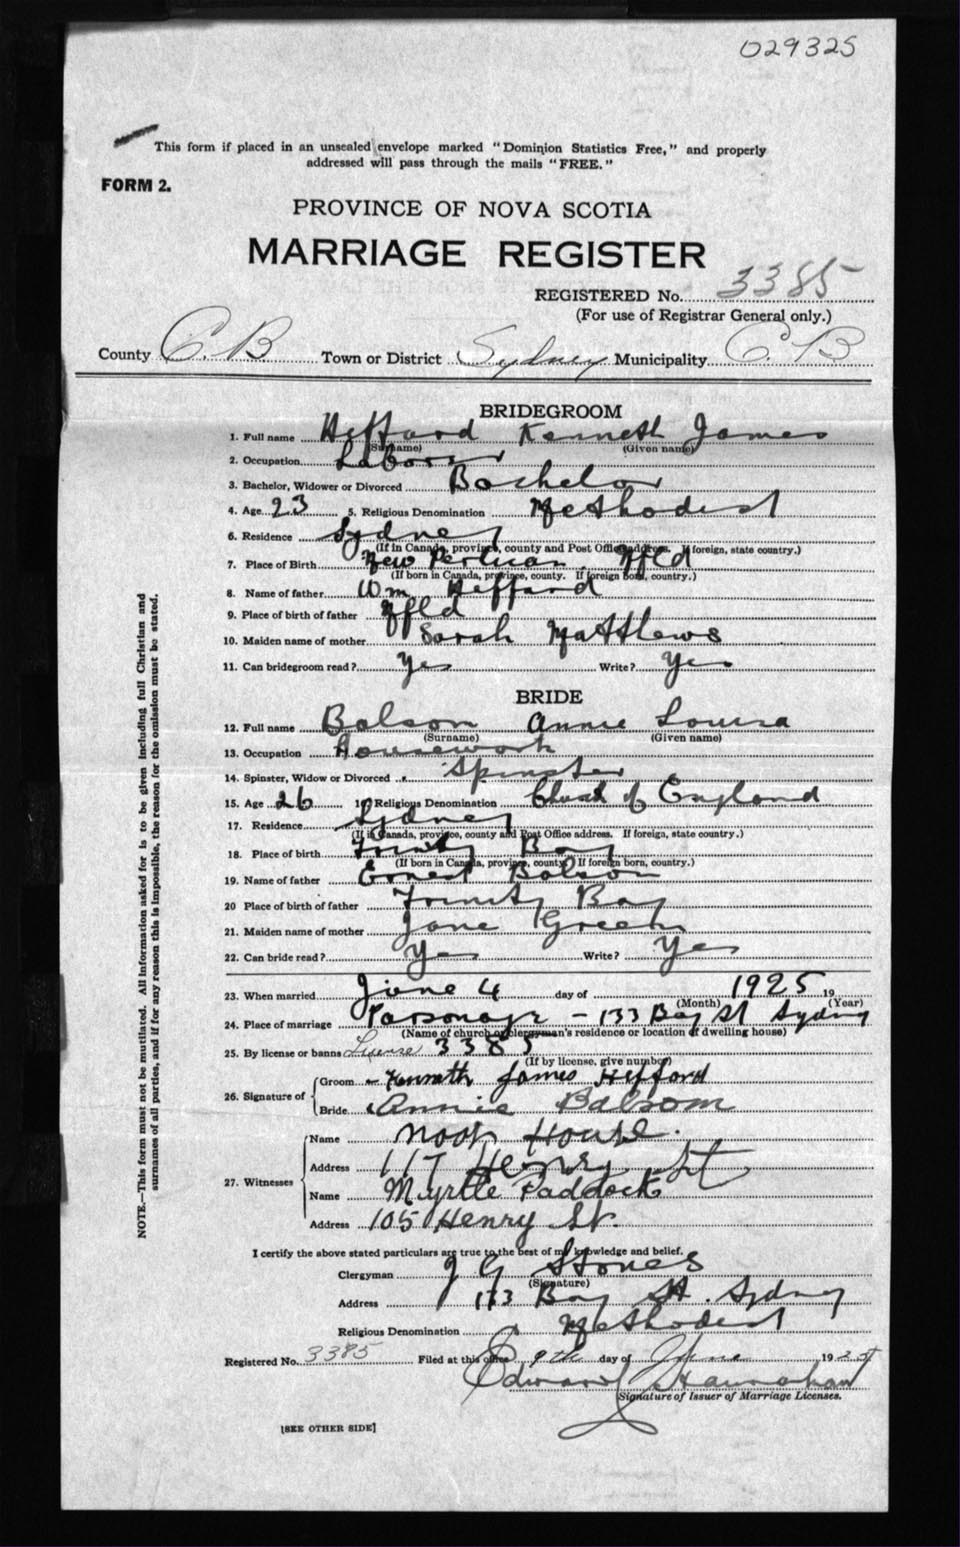 029325
This form if placed in an unsealed envelope marked "Dominion Statistics Free," and properly
addressed will pass through the mails "FREE."
FORM 2.
PROVINCE OF NOVA SCOTIA
MARRIAGE REGISTER
REGISTERED No. 3385
(For use of Registrar General only.)
County C. B Town or District Sydney Municipality C. B
BRIDEGROOM
1. Full name Hefford Kenneth James
(Surname) (Given name)
2. Occupation Laborer
3. Bachelor, Widower or Divorced Bachelor
4. Age 23 5. Religious Denomination Methodist
6. Residence Sydney
(If in Canada, province, county and Post Office address. If foreign, state country.)
7. Place of Birth New Perlican Nfld
(If born in Canada, province, county. If foreign born, country.)
8. Name of father Wm Hefford
9. Place of birth of father Nfld
10. Maiden name of mother Sarah Matthews
11. Can bridegroom read? Yes Write? Yes
BRIDE
12. Full name Bolsom Annie Louisa
(Surname) (Given name)
13. Occupation Housework
14. Spinster, Widow or Divorced Spinster
15. Age 26 16 Religious Denomination Church of England
17. Residence Sydney
(If in Canada, province, county and Post Office address. If foreign, state country.)
18. Place of birth Trinity Bay
(If born in Canada, province, county. If foreign born, country.)
19. Name of father Ernest Bolsom
20 Place of birth of father Trinity Bay
21. Maiden name of mother Jane Green
22. Can bride read? Yes Write? Yes
23. When married June 4 day of 1925 19
(Month) (Year)
24. Place of marriage Parsonage - 133 Bay St Sydney
(Name of church or clergyman's residence or location of dwelling house)
25. By license or banns License 3385
(If by license, give number)
26. Signature of Groom Kenneth James Hefford
Bride Annie Balsom
27. Witnesses Name House.
Address 117 Henry St
Name Myrtle Paddock
Address 105 Henry St.
I certify the above stated particulars are true to the best of my knowledge and belief.
Clergyman J G Stones
(Signature)
Address 133 Bay St. Sydney
Religious Denomination Methodist
Registered No. 3385 Filed at this office 9th day of June 1925
Edward Hanrahan
Signature of Issuer of Marriage Licenses.
[SEE OTHER SIDE]
NOTE.—This form must not be mutilated. All information asked for is to be given including full Christian and
surnames of all parties, and if for any reason this is impossible, the reason for the omission must be stated.